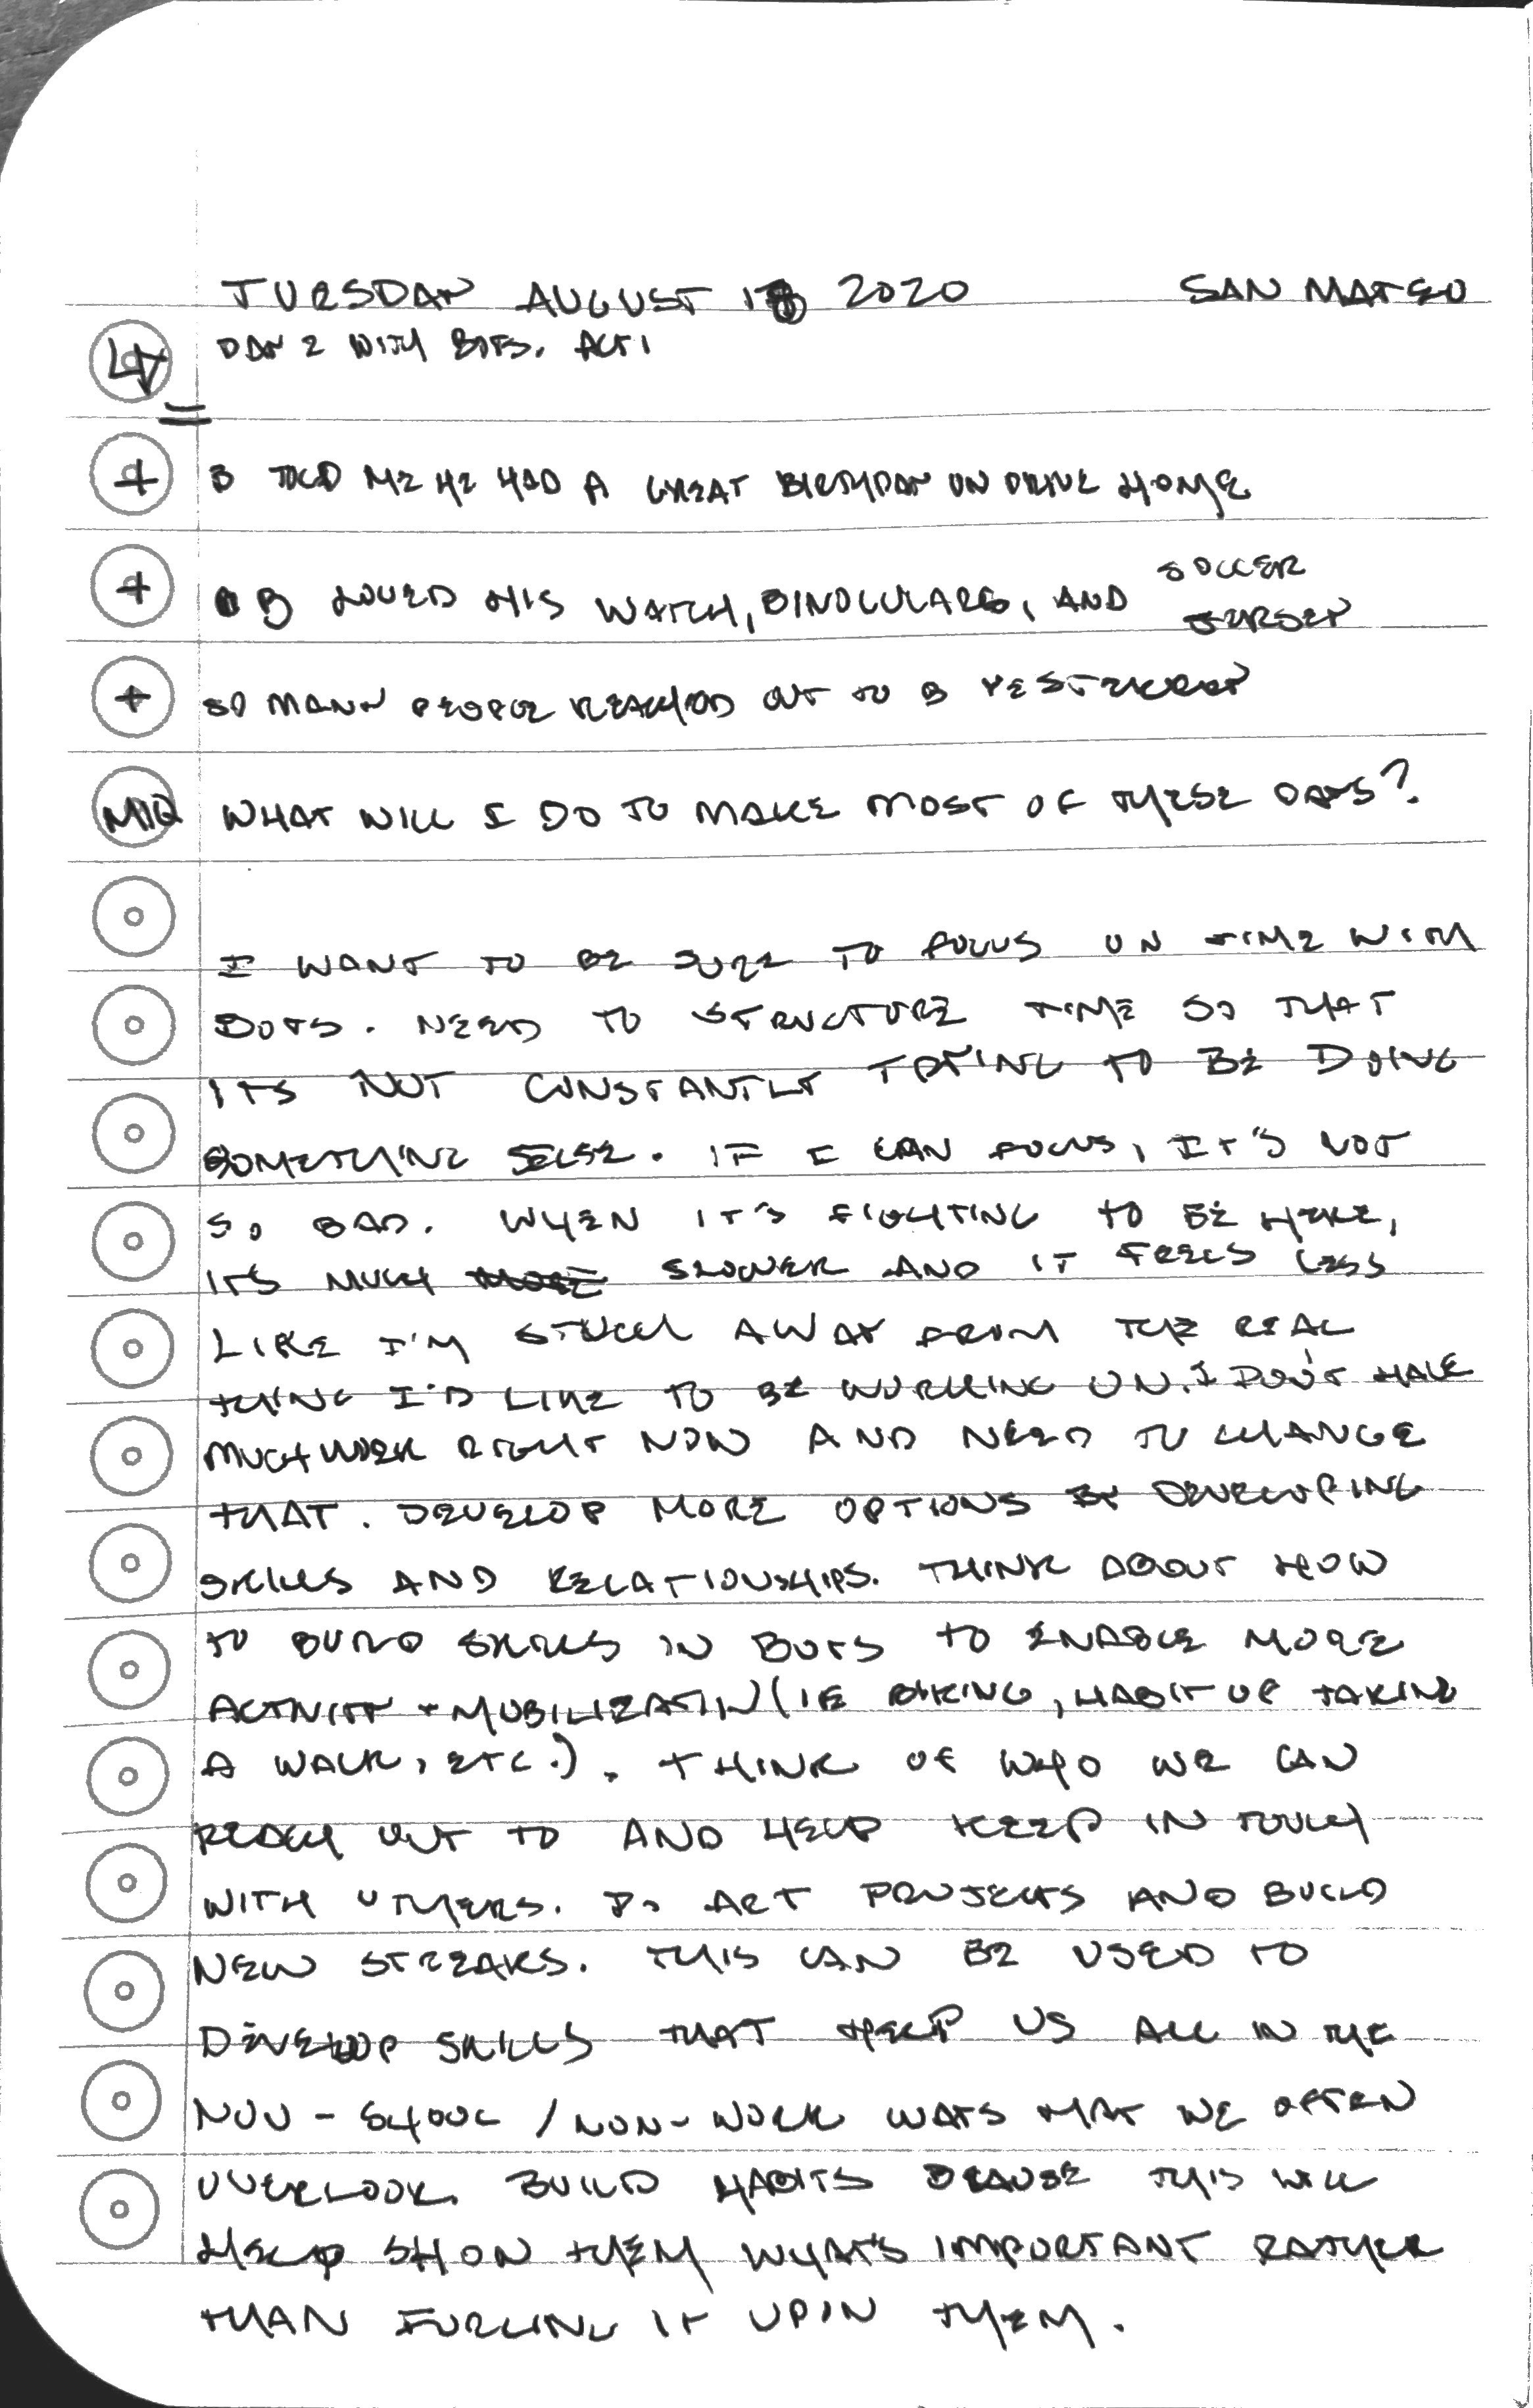 TUESDAY AUGUST 18 2020 SAN MATEO
DAY 2 WITH BOYS. ACT 1
+ B TOLD ME HE HAD A GREAT BIRTHDAY ON DRIVE HOME
+ B LOVED HIS WATCH, BINOCULARS, AND SOCCER
JERSEY
+ SO MANY PEOPLE REACHED OUT TO B YESTERDAY
MIQ WHAT WILL I DO TO MAKE MOST OF THESE DAYS?
I WANT TO BE SURE TO FOCUS ON TIME WITH
BOYS. NEED TO STRUCTURE TIME SO THAT
ITS NOT CONSTANTLY TRYING TO BE DOING
SOMETHING ELSE. IF I CAN FOCUS, IT'S NOT
SO BAD. WHEN IT'S FIGHTING TO BE HERE,
ITS MUCH MORE SLOWER AND IT FEELS LESS
LIKE I'M STUCK AWAY FROM THE REAL
THING I'D LIKE TO BE WORKING ON. I DON'T HAVE
MUCH WORK RIGHT NOW AND NEED TO CHANGE
THAT. DEVELOP MORE OPTIONS BY DEVELOPING
SKILLS AND RELATIONSHIPS. THINK ABOUT HOW
TO BUILD SKILLS IN BOYS TO ENABLE MORE
ACTIVITY + MOBILIZATION (IE BIKING, HABIT OF TAKING
A WALK, ETC.). THINK OF WHO WE CAN
REACH OUT TO AND HELP KEEP IN TOUCH
WITH OTHERS. DO ART PROJECTS AND BUILD
NEW STREAKS. THIS CAN BE USED TO
DEVELOP SKILLS THAT HELP US ALL IN THE
NON-SHOOL / NON-WORK WAYS THAT WE OFTEN
OVERLOOK. BUILD HABITS BEAUSE THIS WILL
HELP SHOW THEM WHAT'S IMPORTANT RATHER
THAN FORCING IT UPON THEM.